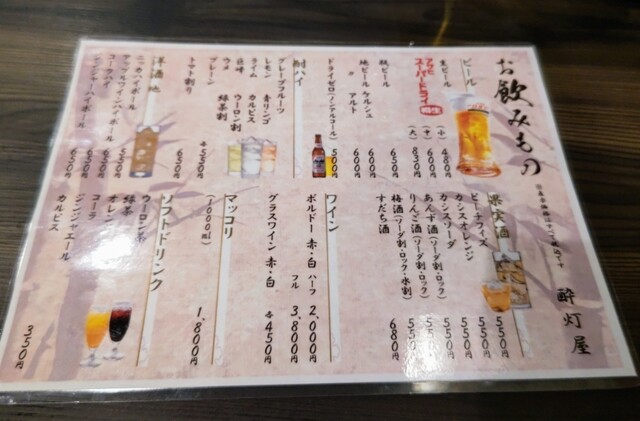 お飲みもの
酔灯屋
ビール
生ビール (小) 480円
アサヒ スーパードライ (中) 600円
(大) 830円
瓶ビール 650円
地ビール ケルシュ 600円
〃 アルト 600円
ドライゼロ(ノンアルコール) 500円
酎ハイ
グレープフルーツ
レモン 青リンゴ
ライム カルピス
巨峰 ウーロン割
ウメ 緑茶割
プレーン 各550円
トマト割り 650円
洋酒 他
ニッカハイボール 550円
アップルワインハイボール 650円
コークハイ 650円
ジンジャーハイボール 650円
果実酒
ピーチフィズ 550円
カシスオレンジ 550円
カシスソーダ 550円
あんず酒(ソーダ割・ロック) 550円
りんご酒(ソーダ割・ロック) 550円
梅酒(ソーダ割・ロック・水割)
すだち酒 680円
ワイン
ボルドー 赤・白 ハーフ 2,000円
フル 3,800円
グラスワイン 赤・白 各450円
マッコリ
(1000ml) 1,800円
ソフトドリンク
ウーロン茶
緑茶
オレンジ
コーラ
ジンジャエール
カルピス
350円